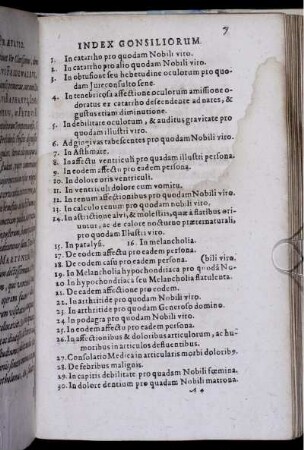 INDEX CONSILIORUM.
1. In catarrho pro quodam Nobili viro.
2. In catarrho pro alio quodam Nobili viro.
3. In obtusione seu hebetudine oculorum pro quo-
dam Jureconsulto sene.
4. In tenebricosa affectione oculorum amissione o-
doratus ex catarrho descendente ad nates, &
gustus etiam diminutione.
5. In debilitate oculorum, & auditus gravitate pro
quodam illustri viro.
6. Ad gingivas tabescentes pro quodam Nobili viro.
7. In Asthmate.
8. In affectu ventriculi pro quadam illustri persona.
9. In eodem affectu pro eadem persona.
10. In dolore oris ventriculi.
11. In ventriculi dolore cum vomitu.
12. In renum affectionibus pro quodam Nobili viro.
13. In calculo renum pro quodam nobili viro.
14. In astrictione alvi, & molestiis, quæ à flatibus ori-
untur, ac de calore nocturno præternaturali,
pro quodam Illustri viro.
15. In paralysi. 16. In melancholia.
17. De eodem affectu pro eadem persona.
18. De eodem casu pro eadem persona. (bili viro.
19. In Melancholia hypochondriaca pro quodã No-
20. In hypochondriaca seu Melancholia flatulenta.
21. De eadem affectione pro eodem.
22. In arthritide pro quodam Nobili viro.
23. In arthritide pro quodam Generoso domino.
24. In podagra pro quodam Nobili viro.
25. In eodem affectu pro eadem persona.
26. In affectionibus & doloribus articulorum, ac hu-
moribus in articulos defluentibus.
27. Consolatio Medica in articularis morbi doloribꝰ.
28. De febribus malignis.
29. In capitis debilitate pro quadam Nobili fœmina.
30. In dolore dentium pro quadam Nobili matrona.